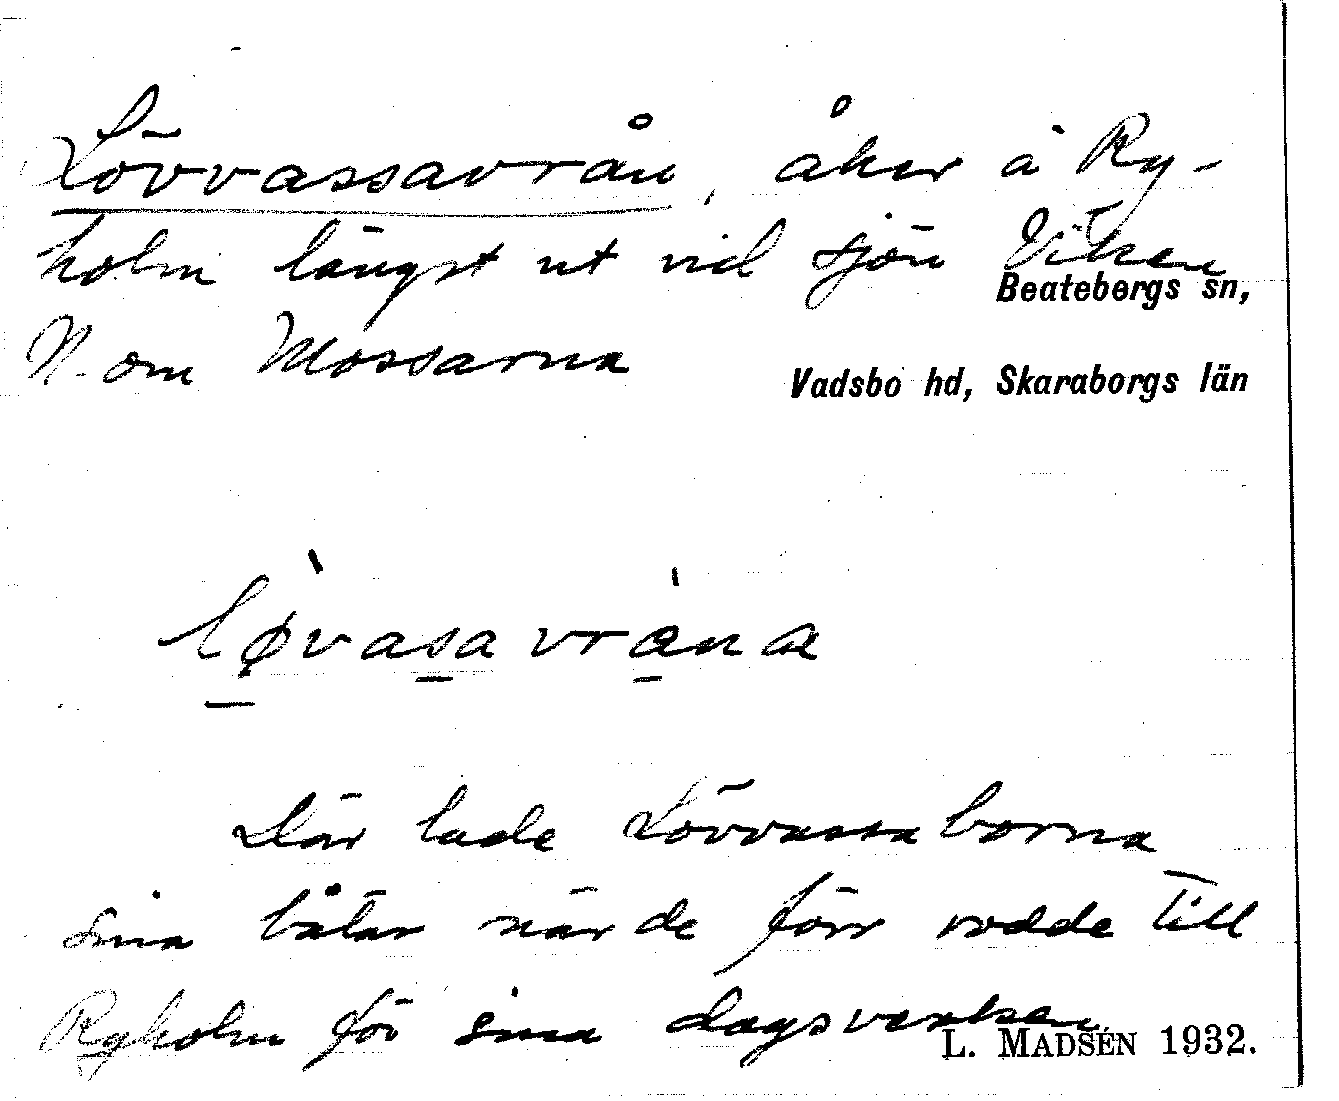 Lövvassavrån, åker å Ry-
holm längst ut vid sjön Viken
Beatebergs sn,
N. om Mossarna
Vadsbo hd, Skaraborgs län
Där lade Lövvassaborna
sina båtar när de förr rodde till
Ryholm för sina dagsverken
L. MADSÉN 1932.